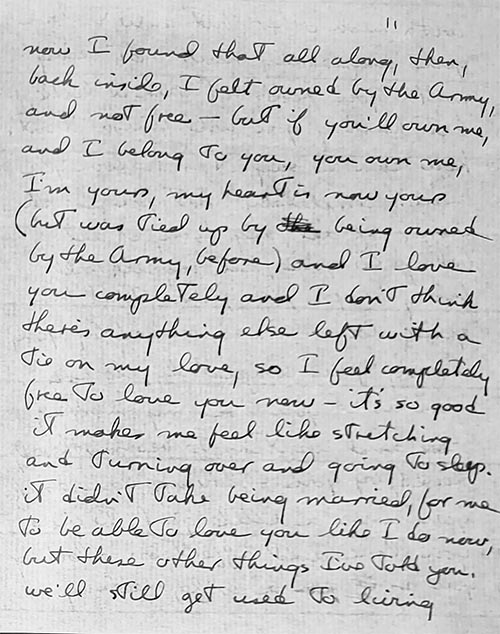 11
now I found that all along, then,
back inside, I felt owned by the Army,
and not free – but if you'll own me,
and I belong to you, you own me,
I'm yours, my heart is now yours
(but was tied up by the being owned
by the Army, before) and I love
you completely and I don't think
there's anything else left with a
tie on my love, so I feel completely
free to love you now – it's so good
it makes me feel like stretching
and turning over and going to sleep.
it didn't take being married, for me
to be able to love you like I do now,
but these other things I've told you.
we'll still get used to living